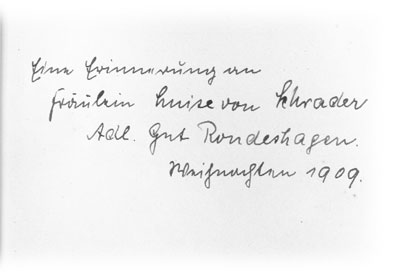 Eine Erinnerung an
Fräulein Luise von Schrader
Adl. Gut Rondeshagen.
Weihnachten 1909.